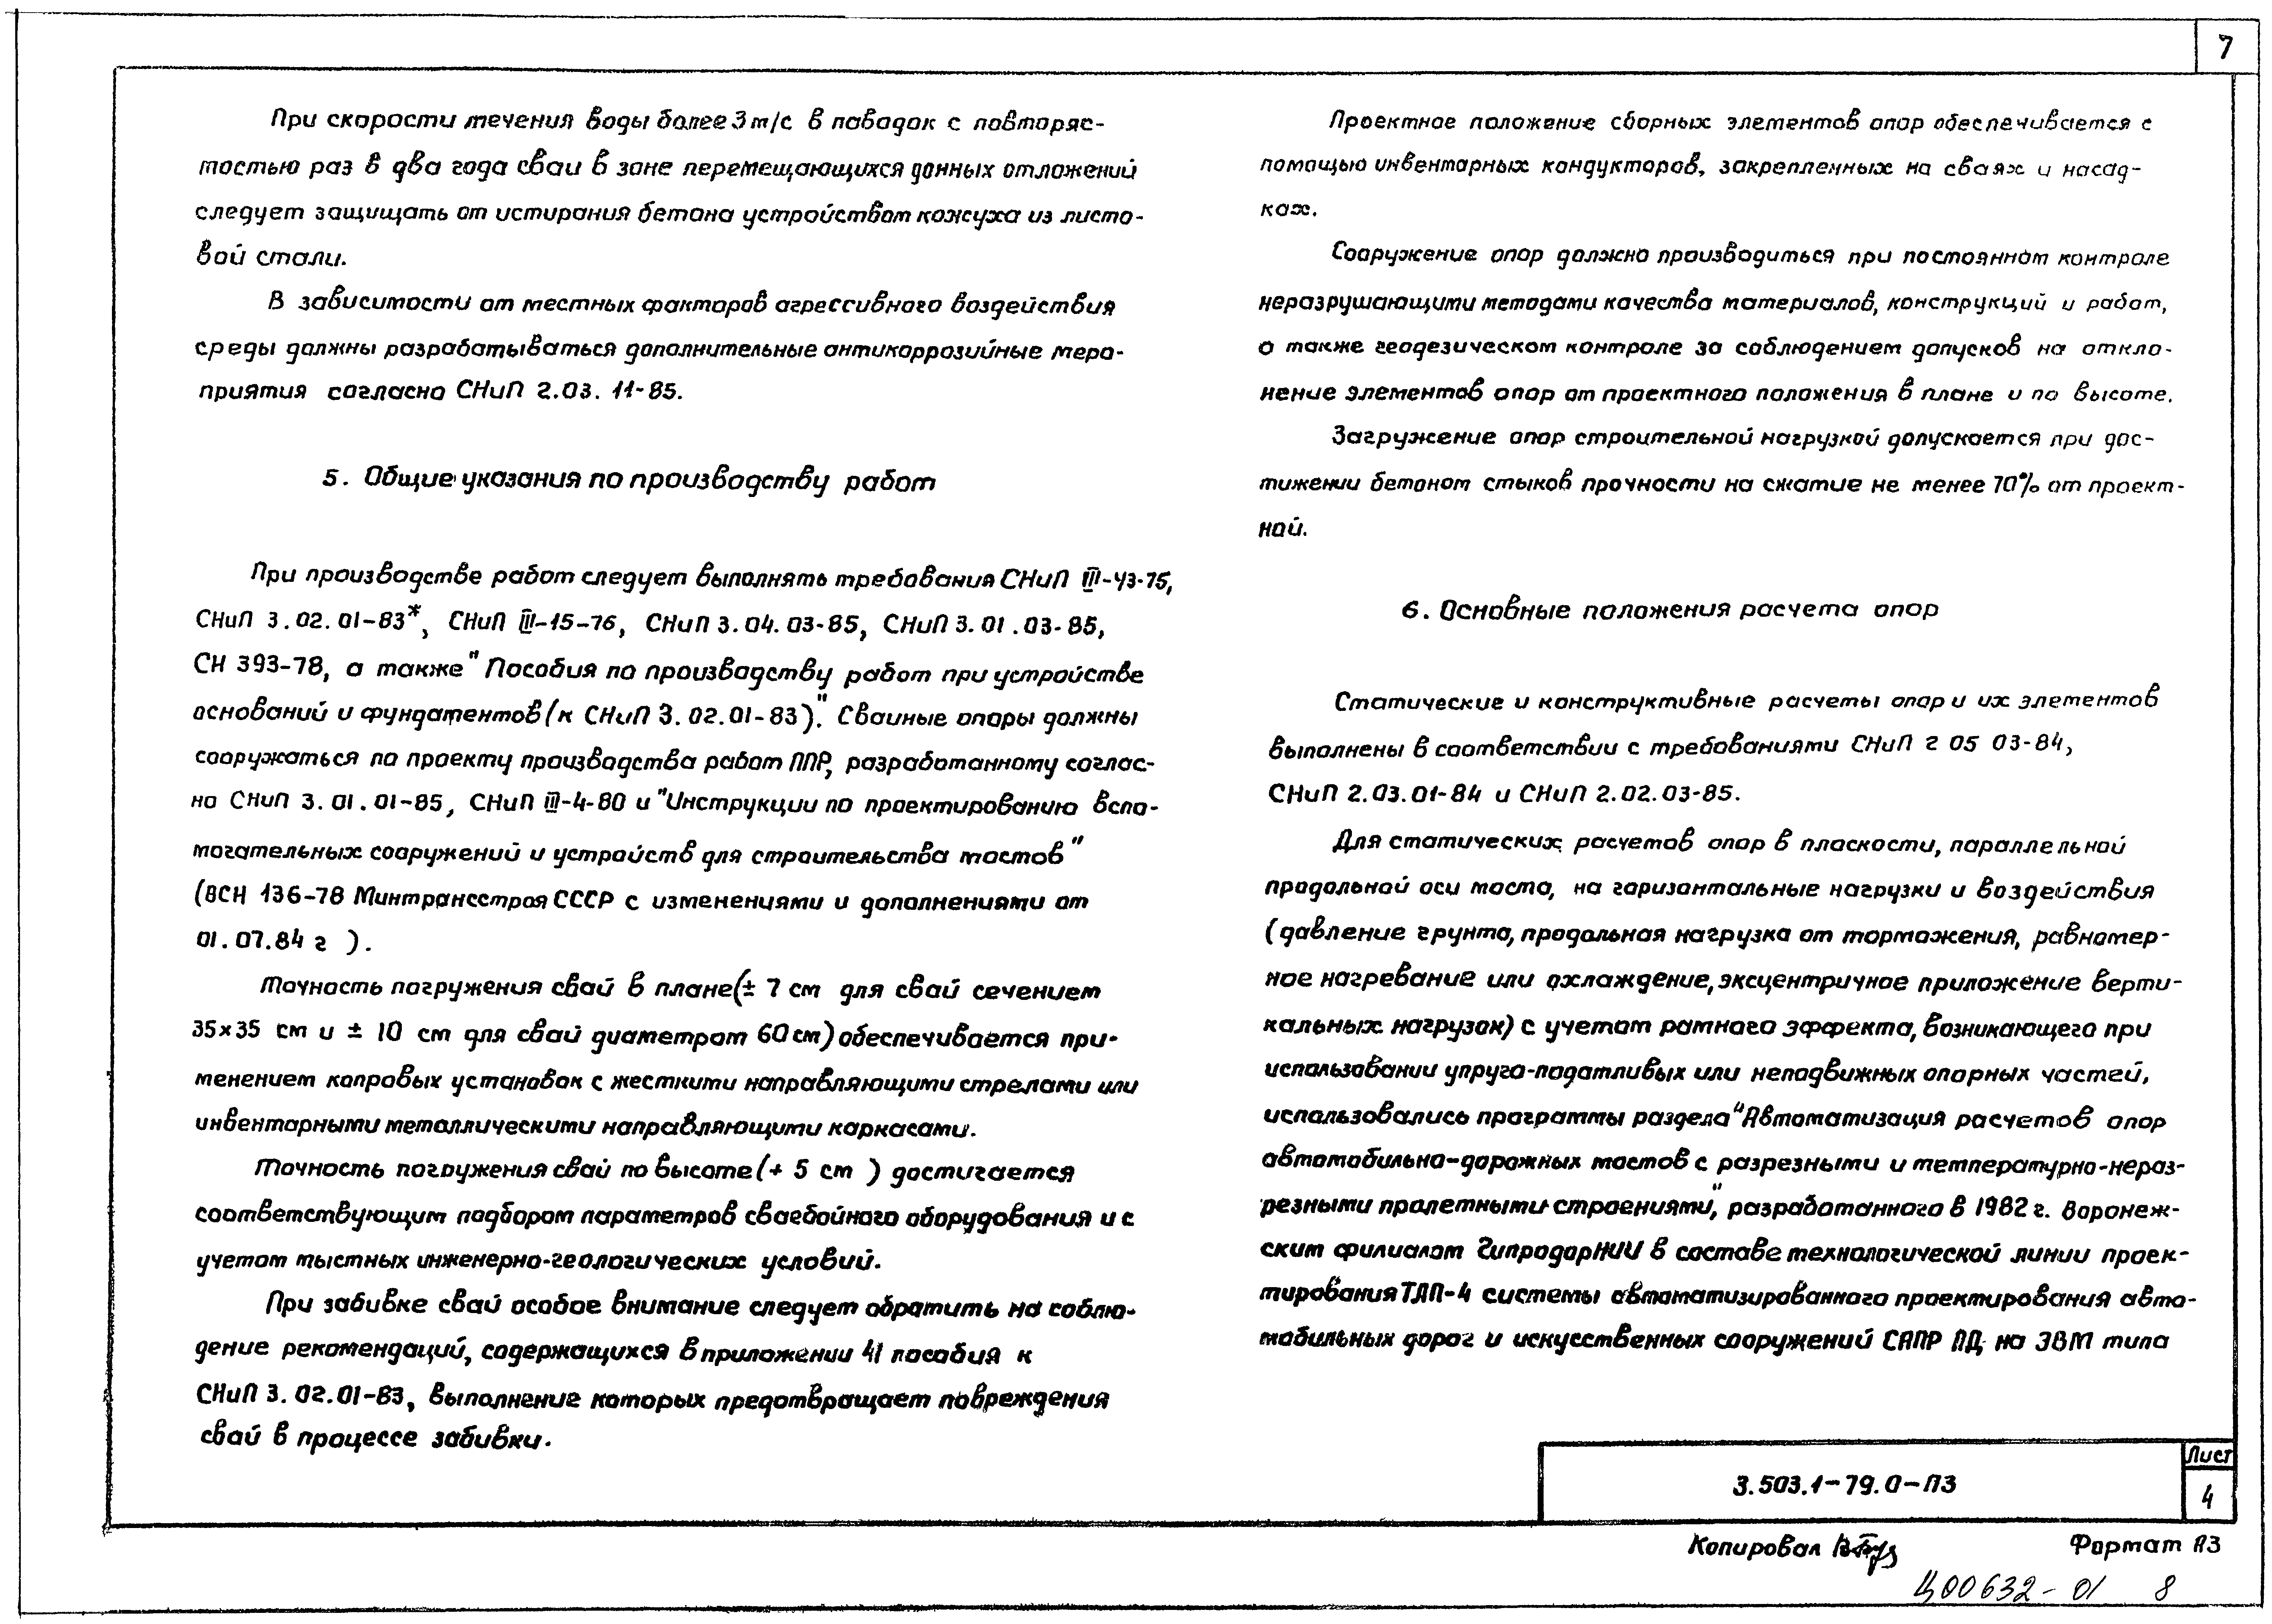 7
При скорости течения воды более 3 м/с в паводок с повторяе-
мостью раз в два года сваи в зоне перемещающихся донных отложений
следует защищать от истирания бетона устройством кожуха из листо-
вой стали.
В зависимости от местных факторов агрессивного воздействия
среды должны разрабатываться дополнительные антикоррозийные меро-
приятия согласно СНиП 2.03.11-85.
5. Общие указания по производству работ
При производстве работ следует выполнять требования СНиП III-43-75,
СНиП 3.02.01-83*, СНиП III-15-76, СНиП 3.04.03-85, СНиП 3.01.03-85,
СН 393-78, а также "Пособия по производству работ при устройстве
оснований и фундаментов (к СНиП 3.02.01-83)". Свайные опоры должны
сооружаться по проекту производства работ ППР, разработанному соглас-
но СНиП 3.01.01-85, СНиП III-4-80 и "Инструкции по проектированию вспо-
могательных сооружений и устройств для строительства мостов"
(ВСН 136-78 Минтрансстроя СССР с изменениями и дополнениями от
01.07.84 г ).
Точность погружения свай в плане (± 7 см для свай сечением
35×35 см и ± 10 см для свай диаметром 60 см) обеспечивается при-
менением копровых установок с жесткими направляющими стрелами или
инвентарными металлическими направляющими каркасами.
Точность погружения свай по высоте (+ 5 см ) достигается
соответствующим подбором параметров сваебойного оборудования и с
учетом мыстных инженерно-геологических условий.
При забивке свай особое внимание следует обратить на соблю-
дение рекомендаций, содержащихся в приложении 41 пособия к
СНиП 3.02.01-83, выполнение которых предотвращает повреждения
свай в процессе забивки.
Проектное положение сборных элементов опор обеспечивается с
помощью инвентарных кондукторов, закрепленных на сваях и насад-
ках.
Сооружение опор должно производиться при постоянном контроле
неразрушающими методами качества материалов, конструкций и работ,
а также геодезическом контроле за соблюдением допусков на откло-
нение элементов опор от проектного положения в плане и по высоте.
Загружение опор строительной нагрузкой допускается при дос-
тижении бетоном стыков прочности на сжатие не менее 70% от проект-
ной.
6. Основные положения расчета опор
Статические и конструктивные расчеты опор и их элементов
выполнены в соответствии с требованиями СНиП 2 05 03-84,
СНиП 2.03.01-84 и СНиП 2.02.03-85.
Для статических расчетов опор в плоскости, параллельной
продольной оси моста, на горизонтальные нагрузки и воздействия
(давление грунта, продольная нагрузка от торможения, равномер-
ное нагревание или охлаждение, эксцентричное приложение верти-
кальных нагрузок) с учетом рамного эффекта, возникающего при
использовании упруго-податливых или неподвижных опорных частей,
использовались программы раздела "Автоматизация расчетов опор
автомобильно-дорожных мостов с разрезными и температурно-нераз-
резными пролетными строениями", разработанного в 1982 г. Воронеж-
ским филиалом ГипродорНИИ в составе технологической линии проек-
тирования ТЛП-4 системы автоматизированного проектирования авто-
мобильных дорог и искусственных сооружений САПР АД на ЭВМ типа
3.503.1-79.0-ПЗ
Лист
4
Копировал
Формат А3
Ц00632-01 8